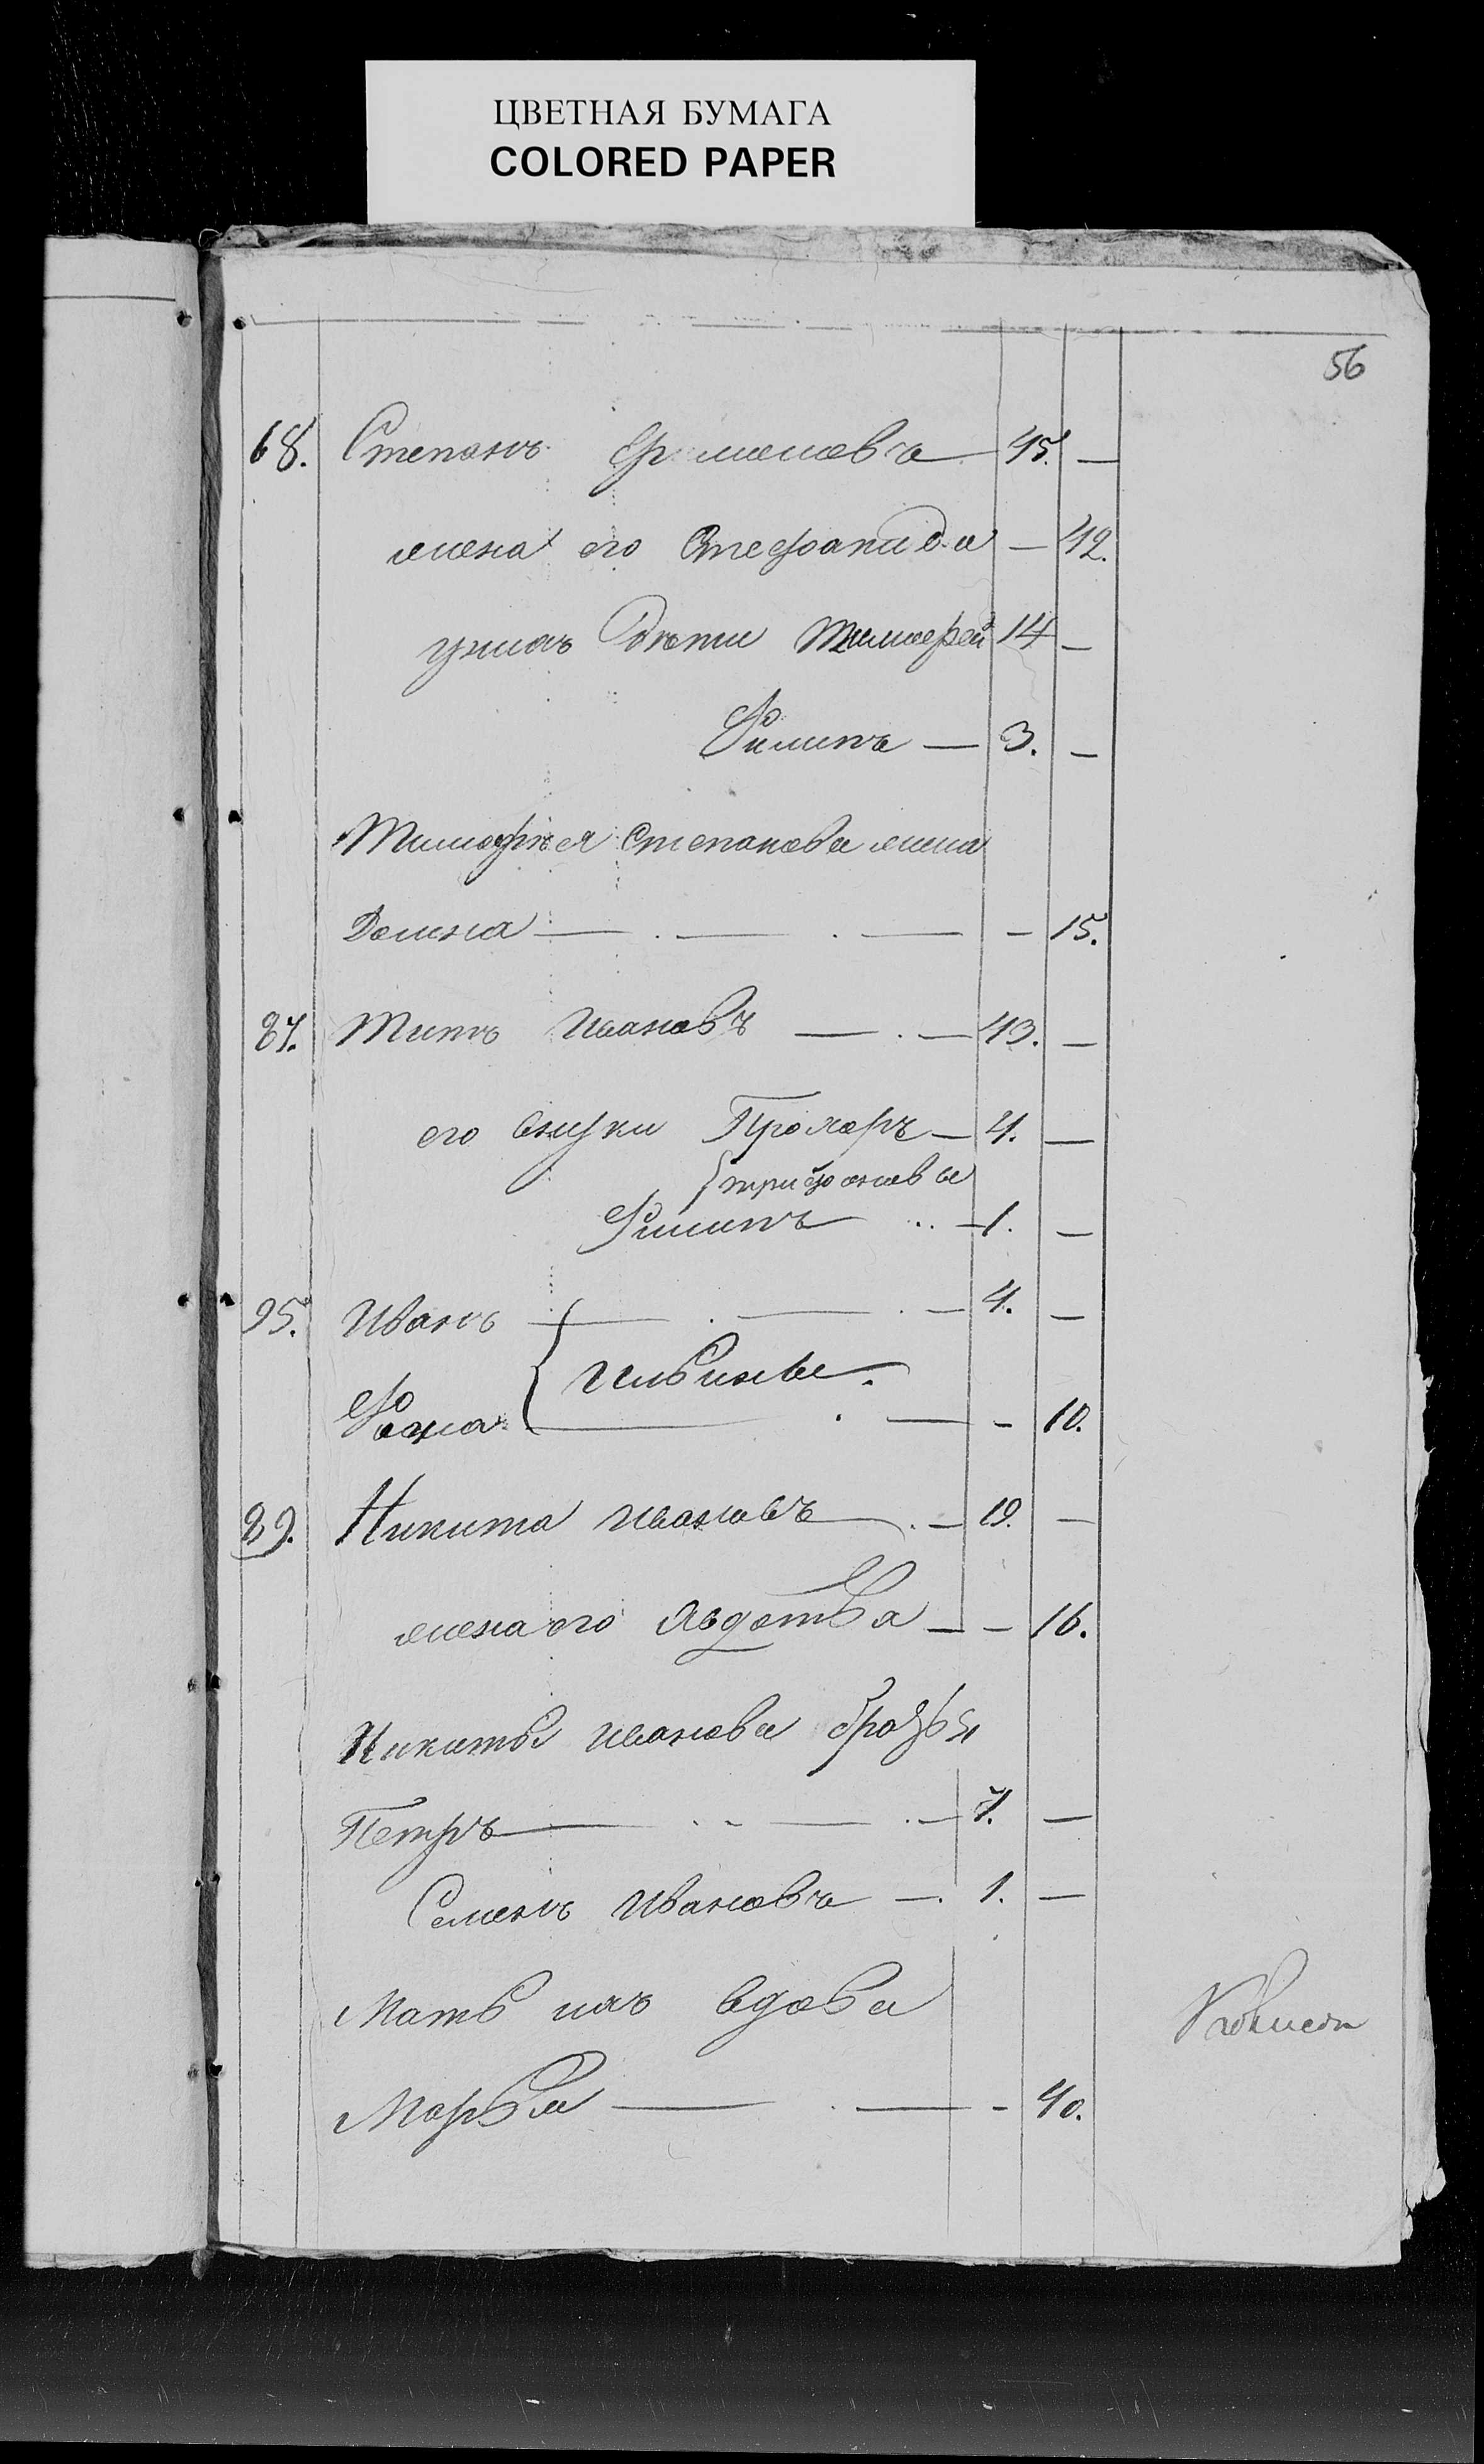 ЦВЕТНАЯ БУМАГА
COLORED PAPER
56
68. Степанъ 45. —
жена его Стефанида — 42.
унихъ дѣти Тимофей 14 —
Филипъ — 3. —
Тимофѣя Степанова жена
Домна — . — . — — 15.
87. Титъ Ивановъ — . — 43. —
его внуки Прохоръ — 4. —
Трифоновы
Филипъ .. — 1. —
95. Иванъ — . — . — 4. —
Ильины.
— . — — 10.
89. Никита Ивановъ — . — 19. —
жена его Авдотья — — 16.
Никиты Иванова братья
Петръ — . . — . — 7. —
Семенъ Ивановъ — . 1. —
Мать ихъ вдова
Марья — . — — 40.